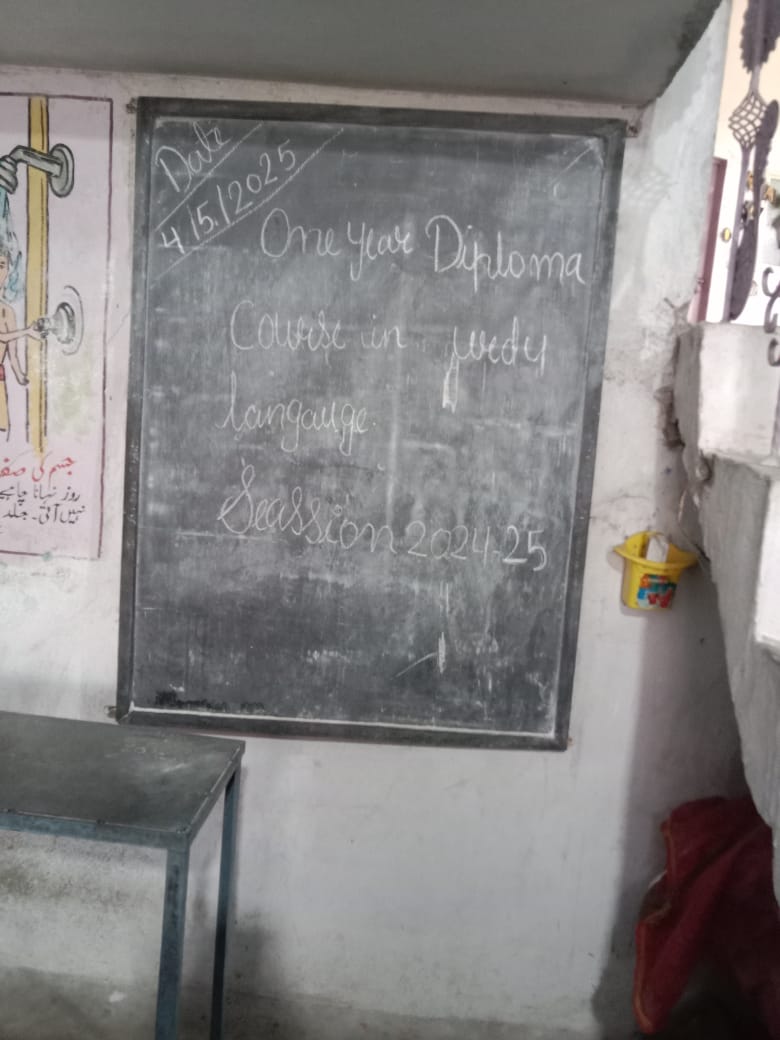 Date
4/5/2025
One year Diploma
Course in urdu
langauge.
Seassion 2024-25
جسم کی صفا
روز نہانا چاہیے
نہیں آتی۔ جلد